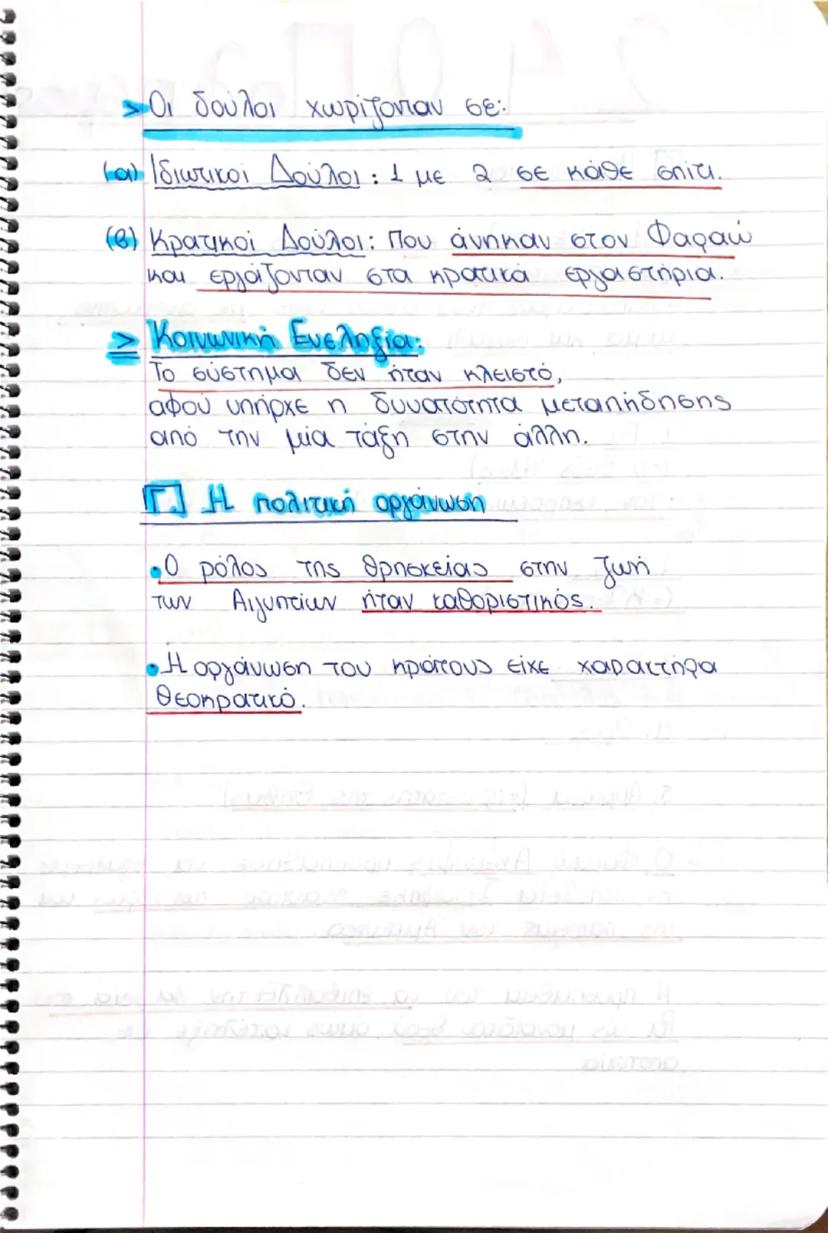 > Οι δούλοι χωρίζονταν σε:
(α) Ιδιωτικοί Δούλοι: 1 με 2 σε κάθε σπίτι.
(β) Κρατικοί Δούλοι: Που άνηκαν στον Φαραώ
και εργάζονταν στα κρατικά εργαστήρια.
> Κοινωνική Ευεληξία:
Το σύστημα δεν ήταν κλειστό,
αφού υπήρχε η δυνατότητα μεταπήδησης
από την μία τάξη στην άλλη.
Γ. Η πολιτική οργάνωση
• Ο ρόλος της θρησκείας στην ζωή
των Αιγυπτίων ήταν καθοριστικός.
• Η οργάνωση του κράτους είχε χαρακτήρα
θεοκρατικό.